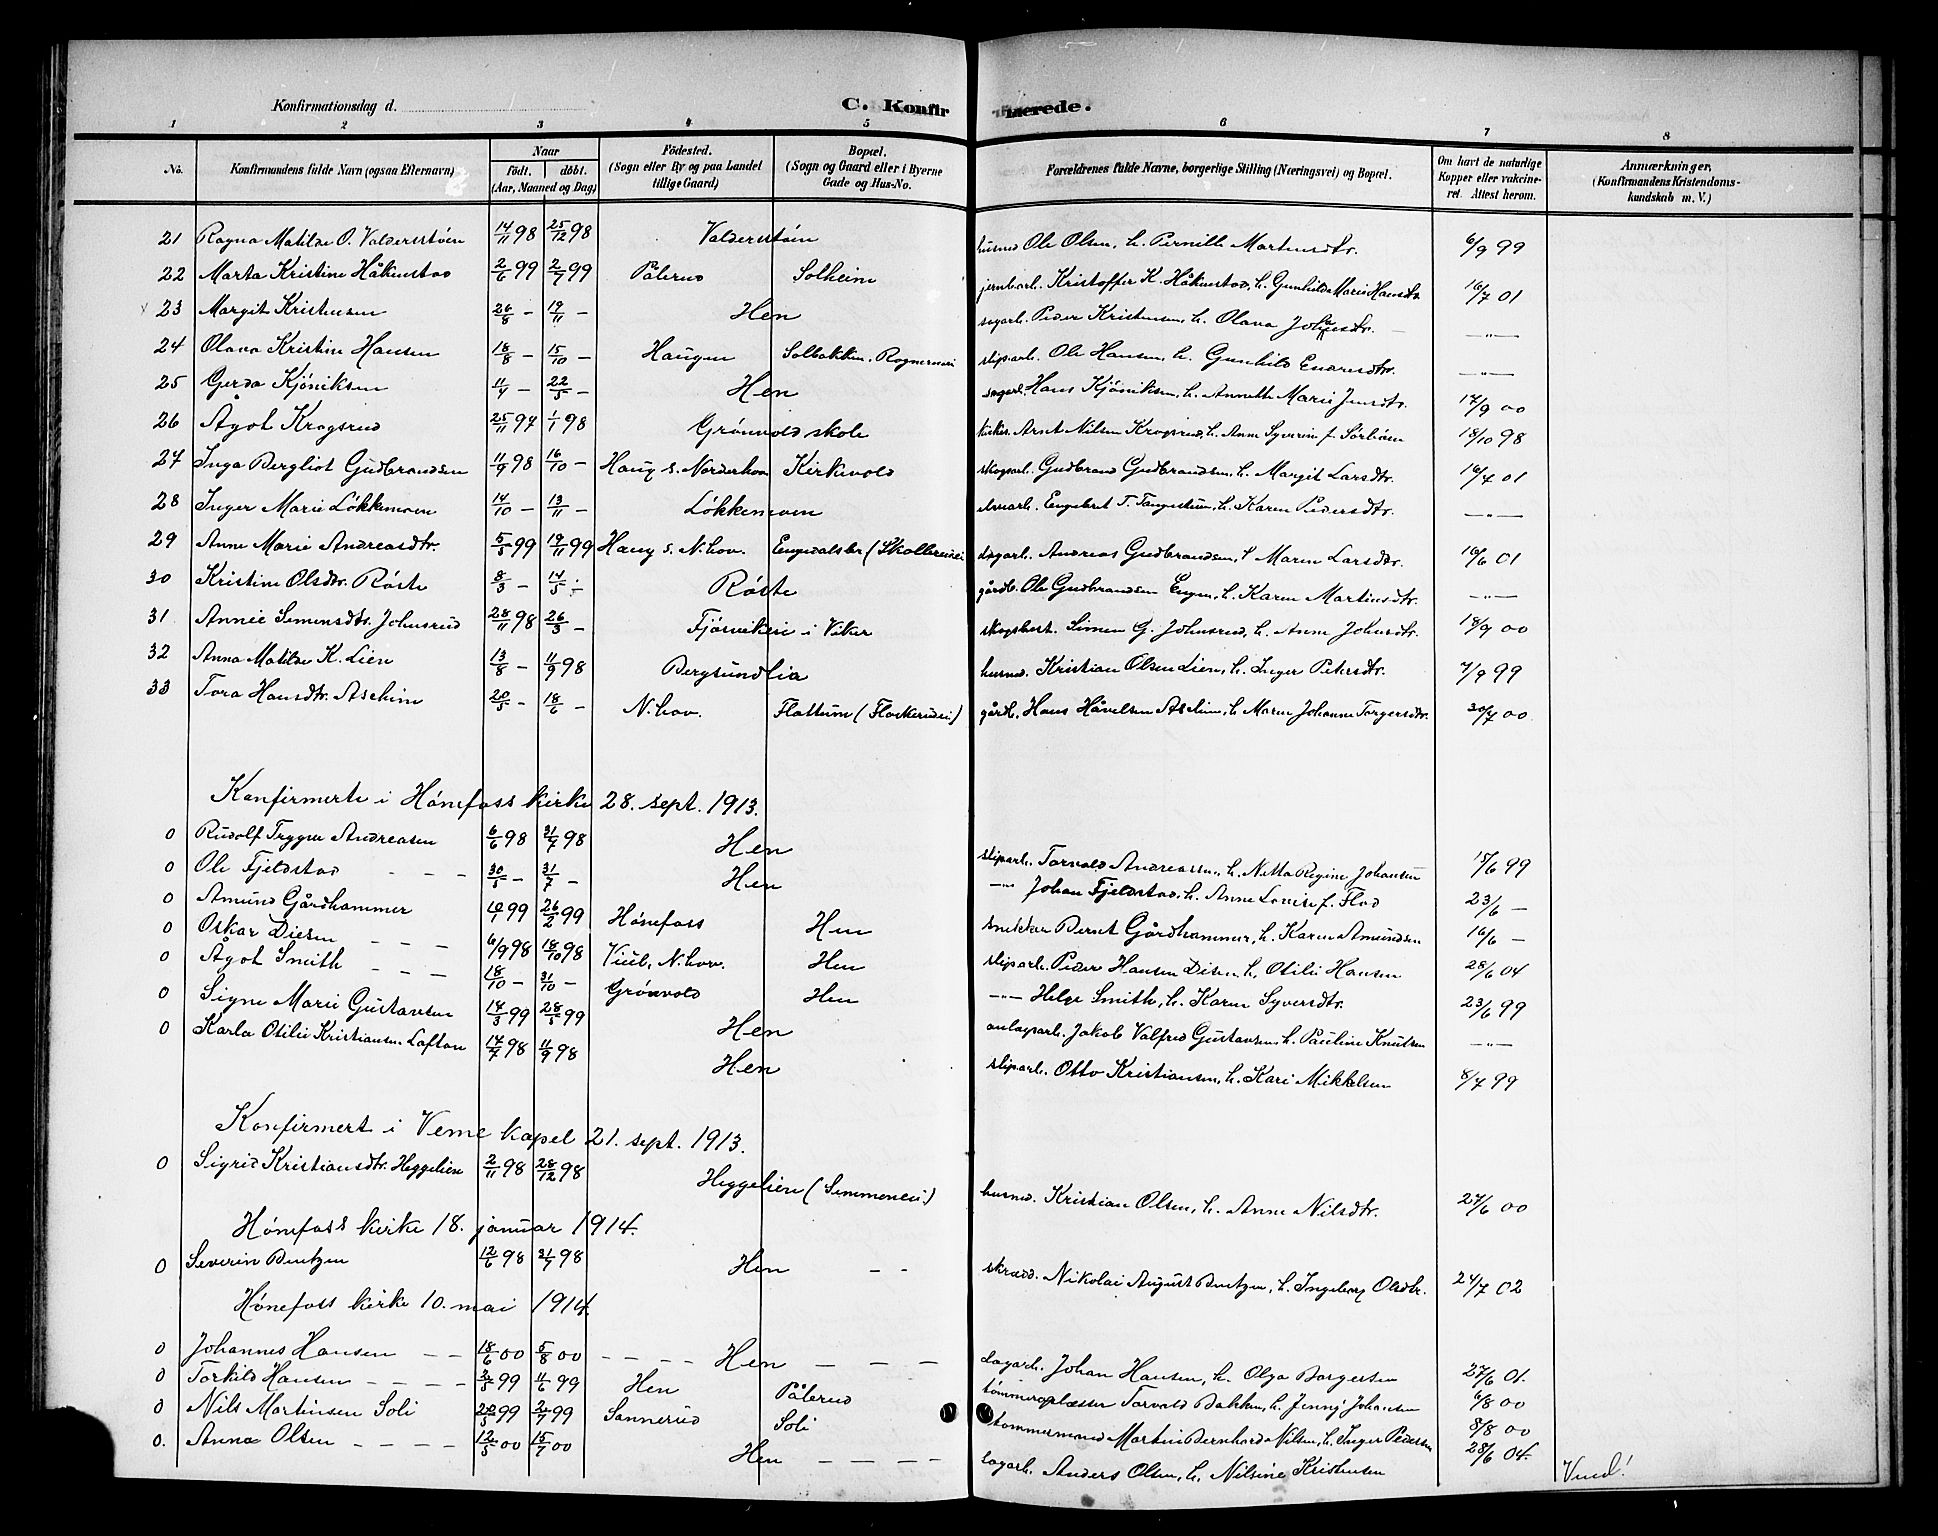 Konfirmationsdag d.
C. Konfirmerede.
1 2 3 4 5 6 7 8
No. Konfirmandens fulde Navn (ogsaa Efternavn) Naar födt. döbt. (Aar, Maaned og Dag) Födested. (Sogn eller By og paa Landet tillige Gaard) Bopæl. (Sogn og Gaard eller i Byerne Gade og Hus-No. Forældrenes fulde Navne, borgerlige Stilling (Næringsvei) og Bopæl. Om havt de naturlige Kopper eller vakcineret. Attest herom. Anmærkninger, (Konfirmandens Kristendomskundskab m. V.)
21 Ragna Matilde O. Valdersstøen 14/11 98 25/12 98 Valdersstøen husmd. Ole Olsen, h. Pernille Martinsdtr. 6/9 99
22 Marta Kristine Håkenstad 2/6 99 2/7 99 Pålerud Solheim jernbarb. Kristoffer K. Håkenstad, h. Gunhilda Marie Hansdtr. 16/7 01
23 Margit Kristensen 26/8 – 19/11 – Hen sagarb. Peder Kristensen, h. Olava Johansdtr. —"—
24 Olava Kristine Hansen 18/8 – 15/10 – Haugen Solbakken, sliparb. Ole Hansen, h. Gunhild Endresdtr. —"—
25 Gerda Kjøniksen 11/4 – 22/5 – Hen sagarb. Hans Kjøniksen, h. Annette Marie Jensdtr. 17/9 00
26 Ågot Krogsrud 25/11 97 1/1 98 Grønvold skole kirkes. Arnt Nilsen Krogsrud, h. Anne Syverine f. Sørlien 18/10 98
27 Inga Bergliot Gudbrandsen 11/9 98 16/10 – Haug s. Norderhov Kirkevold skogsarb. Gudbrand Gudbrandsen, h. Margit Larsdtr. 16/7 01
28 Inger Marie Løkkemoen 14/10 – 13/11 – Løkkemoen Engebret T. Tangestuen, h. Karen Pedersdtr. —"—
29 Anne Marie Andreasdtr. 5/5 99 19/11 99 Haug s. N.hov. Engedalsbr. sagarb. Andreas Gudbrandsen, h. Maren Larsdtr. 16/6 01
30 Kristine Olsdtr. Røste 8/3 – 14/5 – Røste gårdb. Ole Gudbrandsen Engen, h. Karen Martinsdtr. —"—
31 Annie Simensdtr. Johnsrud 28/11 98 26/3 – Fjørviken i Viker skogsbest. Simen G. Johnsrud, h. Anne Johnsdtr. 18/9 00
32 Anna Matilde K. Lien 13/8 – 11/9 98 Bergsundlia husmd. Kristian Olsen Lien, h. Inger Petersdtr. 7/9 99
33 Tora Hansdtr. Aschim 20/5 – 18/6 – N.hov. Flattum (Flaskerudei) gårdb. Hans Håvelsen Aschim, h. Maren Johanne Torgersdtr. 30/7 00
Konfirmerte i Hønefoss kirke 28. sept. 1913.
0 Rudolf Trygve Andreasen 6/6 98 31/7 98 Hen sliparb. Torvald Andreassen, h. Netta Regine Johansen 15/6 99
0 Ole Fjeldstad – – – 30/5 – 31/7 – Hen —"— Johan Fjeldstad, h. Anne Lovise f. Flod 23/6 –
0 Amund Gårdhammer 10/1 99 26/2 99 Hønefoss Hen snekker Bernt Gårdhammer, h. Karen Amundsen 16/6 –
0 Oskar Diesen – – – 6/9 98 18/10 98 Viul, N.hov. Hen sliparb. Peder Hansen Disen, h. Otilie Hansen 28/6 04
0 Ågot Smith – – – 18/10 – 31/10 – Grønvold Hen —"— Helge Smith, h. Karen Syversdtr. 23/6 99
0 Signe Marie Gustavsen 14/3 99 28/5 99 Hen anlagsarb. Jakob Valfred Gustavsen, h. Pauline Knutsen —"—
0 Karla Otilie Kristiansen Lafton 17/7 98 11/9 98 Hen sliparb. Otto Kristiansen, h. Kari Mikkelsen 8/7 99
Konfirmert i Veme kapel 21. sept. 1913.
0 Sigrid Kristiansdtr. Heggelien 2/11 98 28/12 98 Heggelien (Semmeneie) husmd. Kristian Olsen, h. Anne Nilsdtr. 27/6 00
Hønefoss kirke 18. januar 1914.
0 Severin Bentzen 12/6 98 31/7 98 Hen – – skrædd. Nikolai August Bentzen, h. Ingeborg Olsdtr. 24/7 02
Hønefoss kirke 10. mai 1914.
0 Johannes Hansen – – 18/6 00 5/8 00 – – – – Hen – – – Sagarb. Johan Hansen, h. Olga Borgersen 27/6 01.
0 Torkild Hansen – – – – 99 11/6 99 Hen Pålerud tømmeroplæsser Torvald Bakken, h. Jenny Johansen 6/8 00
0 Nils Martinsen Soli 20/5 99 99 Sannerud Soli tømmermand Martin Bernhard Nilsen, h. Inger Pedersen 8/8 00
0. Anna Olsen – – – – 12/5 00 15/7 00 Hen – – – – Sagarb. Anders Olsen, h. Nilsine Kristensen 28/6 04.